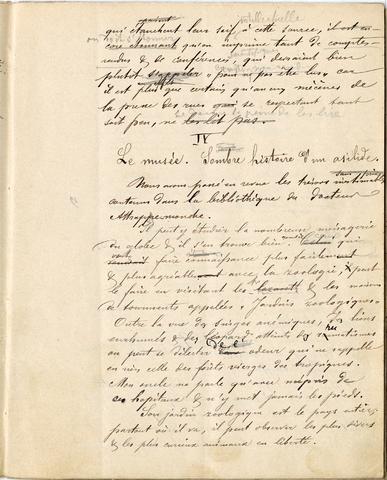 qui étanchent leur soif à cette source, il est en-
core étonnant qu'on imprime tant de comptes-
rendus & de conférences, qui devraient bien
plutôt s'appeler « pour ne pas être lus, car
il est plus que certain qu'aucun mécène de
la prose des rues qui se respectant tant
soit peu, ne les lit pas.
IV
Le musée. Sombre histoire d'un asilide.
Nous avons passé en revue les trésors
contenus dans la bibliothèque du docteur
Attrappemouche.
Il peut y étudier la nombreuse ménagerie
du globe & il s'en trouve bien. qui
faire connaissance plus facilement
& plus agréablement avec la zoologie, peut
le faire en visitant les & les maisons
de tourments appelées « Jardins zoologiques ».
Outre la vue des singes anémiques, des lions
enrhumés & des atteints de rhumatismes
on peut se délecter odeur qui ne rappelle
en rien celle des forêts vierges des tropiques.
Mon oncle ne parle qu'avec mépris de
ces hôpitaux & n'y met jamais les pieds.
Son jardin zoologique est le pays entier,
partout où il va, il peut observer les plus divers
& les plus curieux animaux en liberté.